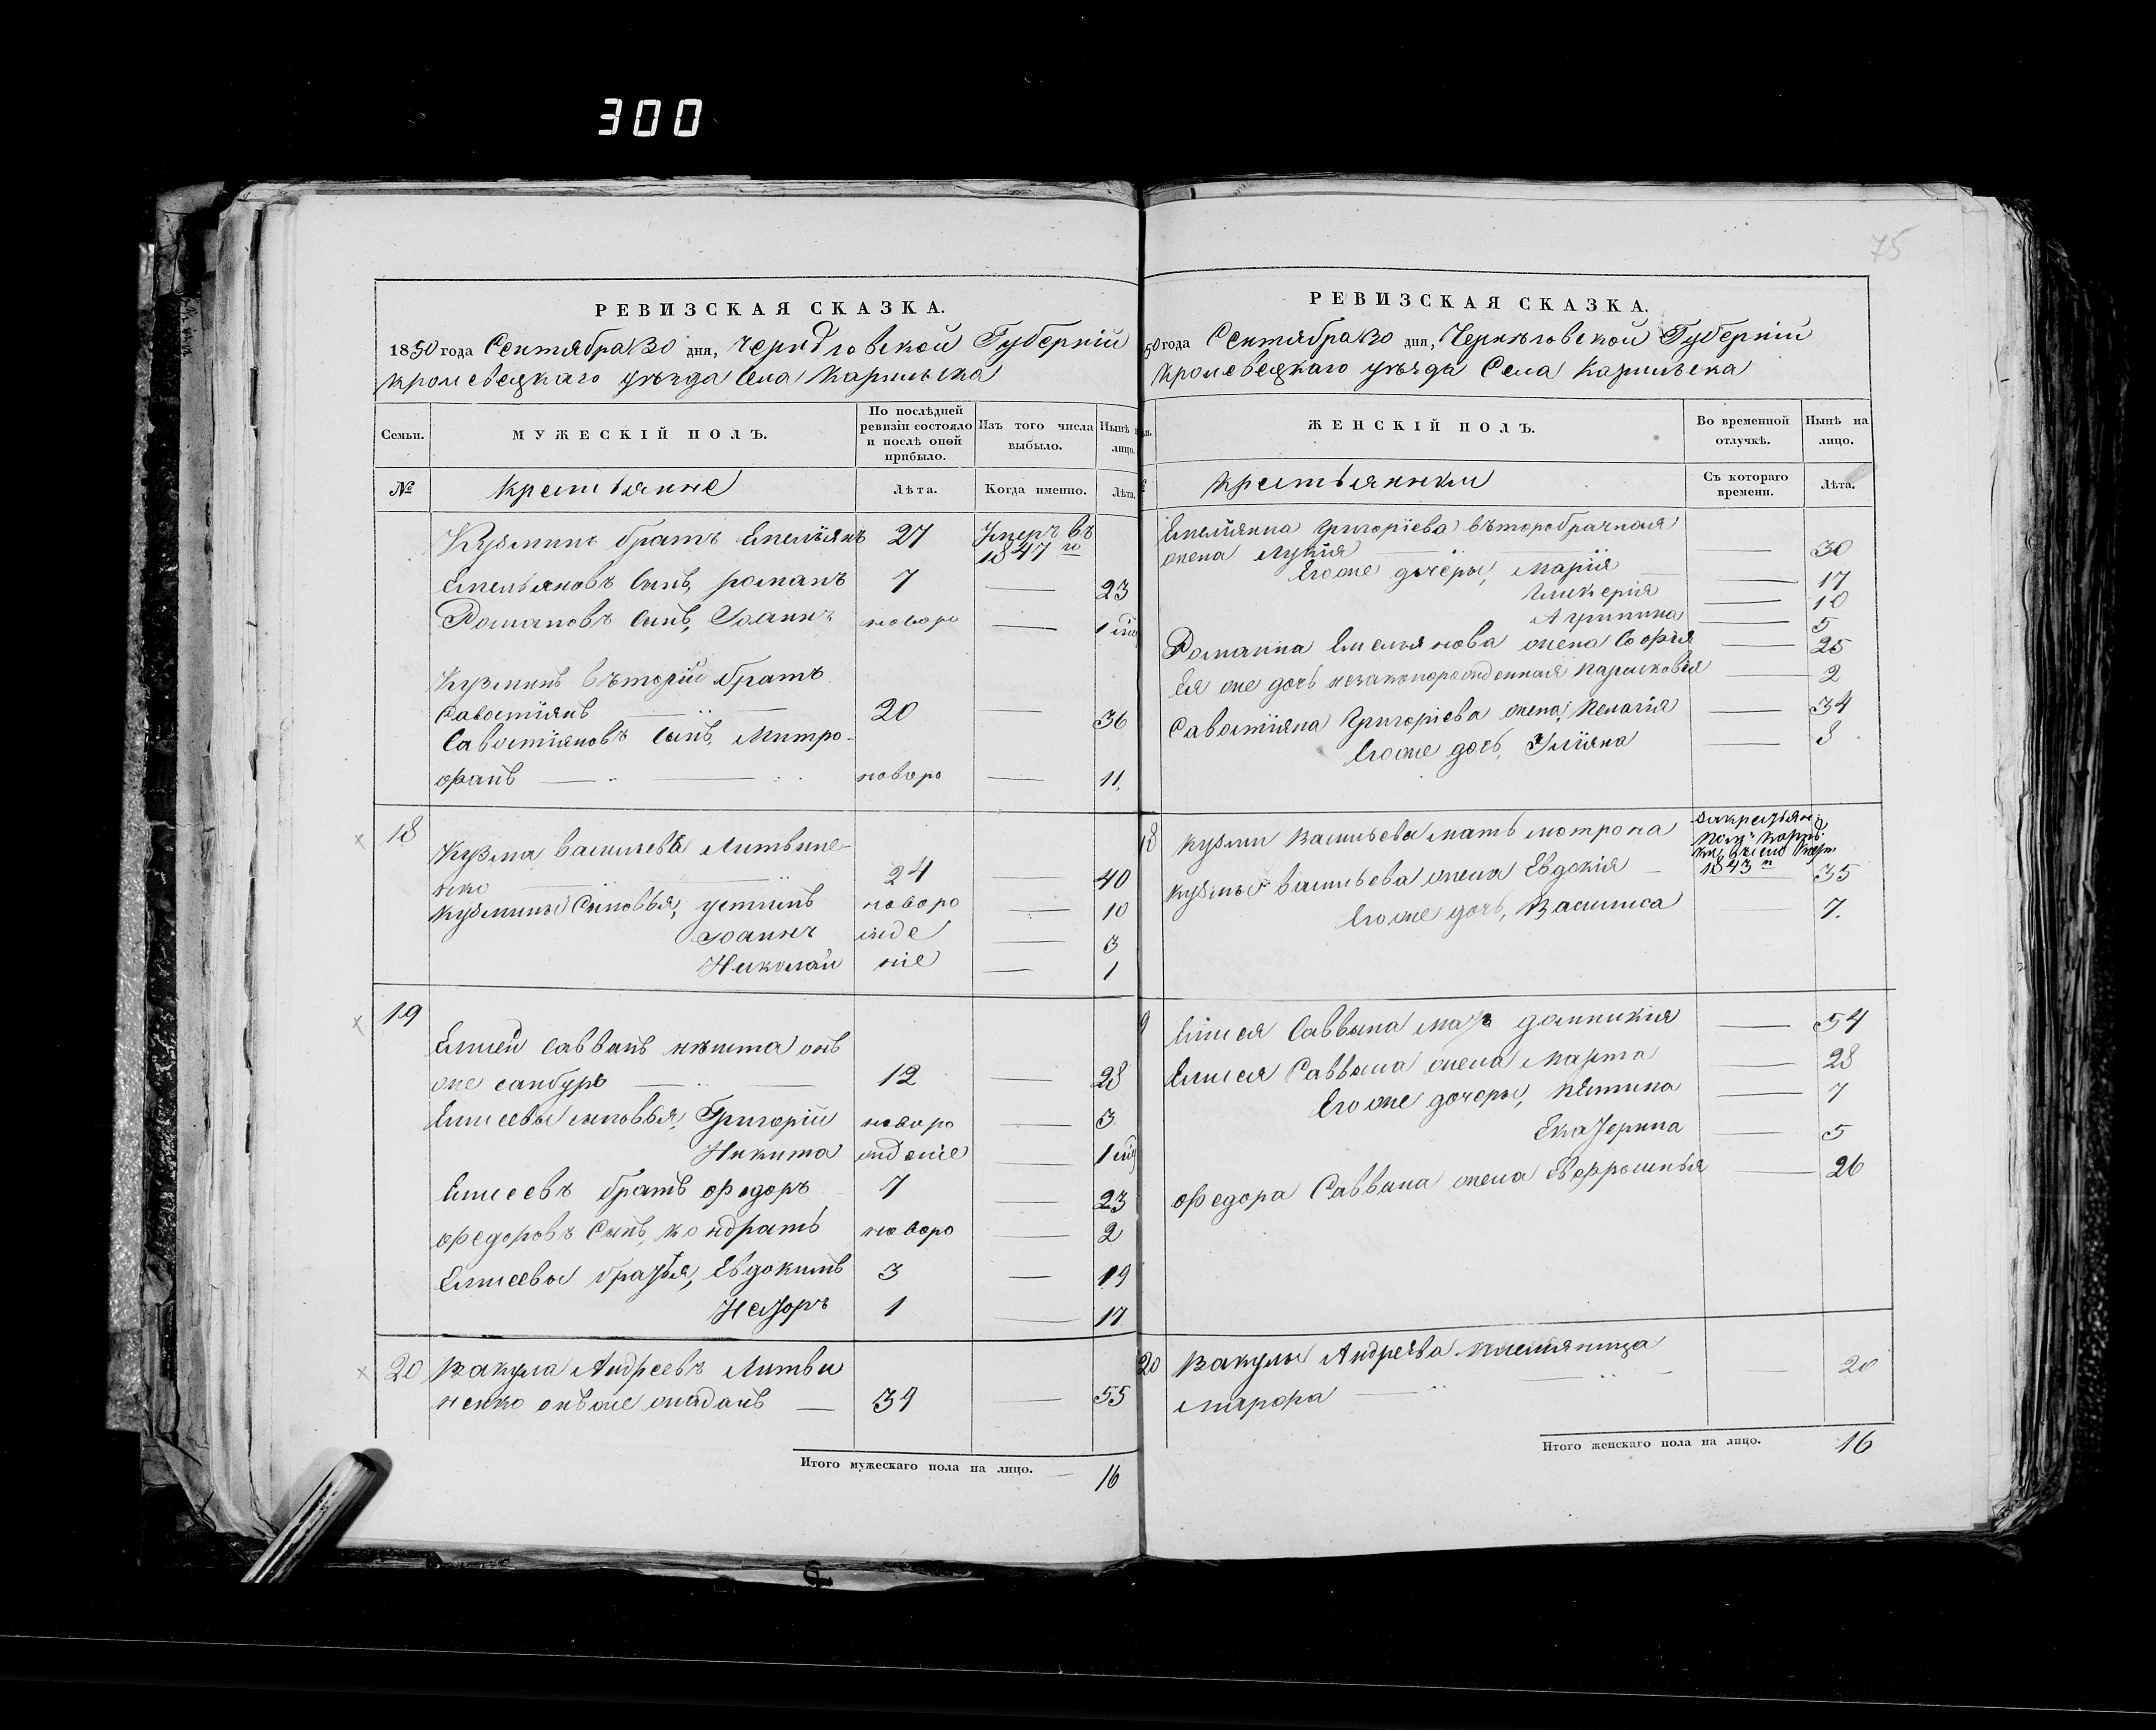 300
75
РЕВИЗСКАЯ СКАЗКА.
1850 года Сентября 30 дня, Черниговской Губерніи
Кролевецкаго уѣзда Села Карильска
Семьи.
МУЖЕСКІЙ ПОЛЪ.
По послѣдней ревизіи состояло и послѣ оной прибыло.
Изъ того числа выбыло.
Нынѣ лицо.
№
крестьяние
Лѣта.
Когда именно.
Лѣта.
Кузминъ братъ Емельянъ 27 Умеръ въ 1847 го
Емельяновъ сынъ, романъ 7 — 23
Романовъ сынъ, Іоаннъ новоро — 1
Кузминъ вѣторій братъ
Савостіянъ — 20 — 36
Савостіяновъ сынъ, Митро-
фанъ — новоро — 11.
18
Кузма васильевъ Литвине-
нко 24 — 40
Кузмины Сыновья, устинъ новоро — 10
Іоаннъ жде — 3
Николай ніе — 1
19
Елисей саввинъ онъ
же самбуръ — 12 — 28
Елисеевы сыновья, Григорій новоро — 3
Никита жденіе — 1
Елисеевъ братъ федоръ 7 — 23
федоровъ Сынъ, кондратъ новоро — 2
Елисеевы братья, Евдокимъ 3 — 19
Несторъ 1 — 17.
20 Вакула Андреевъ Литви
ненко онъже жаданъ — 39 — 55
Итого мужескаго пола на лицо. — 16
РЕВИЗСКАЯ СКАЗКА.
50 года Сентября 30 дня, Черниговской Губерніи
Кролевецкаго уѣзда Села Карильска
ЖЕНСКІЙ ПОЛЪ.
Во временной отлучкѣ.
Нынѣ на лицо.
крестьянки
Съ котораго времени.
Лѣта.
Емельяна Григоріева вѣторобрачная
жена Лукія — 30
Егоже дочеры, Марія — 17
Гликерія — 10
Агрипина — 5
Романа Емельянова жена Софія — 25
Ея же дочь незаконорожденная Парасковія — 2
Савостіяна Григоріева жена, Пелагія — 34
Егоже дочь, Уліяна — 8
18 Кузми Васильева мать мотрона 1843
Кузмы васильева жена Евдокія — 35
Егоже дочь, Василиса 7.
9 Елисея Саввина мать домникия — 54
Елисея Саввина жена Марта — 28
Егоже дочеры, — 7
Екатерина — 5
федора Саввина жена Евфросинья — 26
20 Вакулы Андреева племяница
Марфа — 20
Итого женскаго пола на лицо. 16